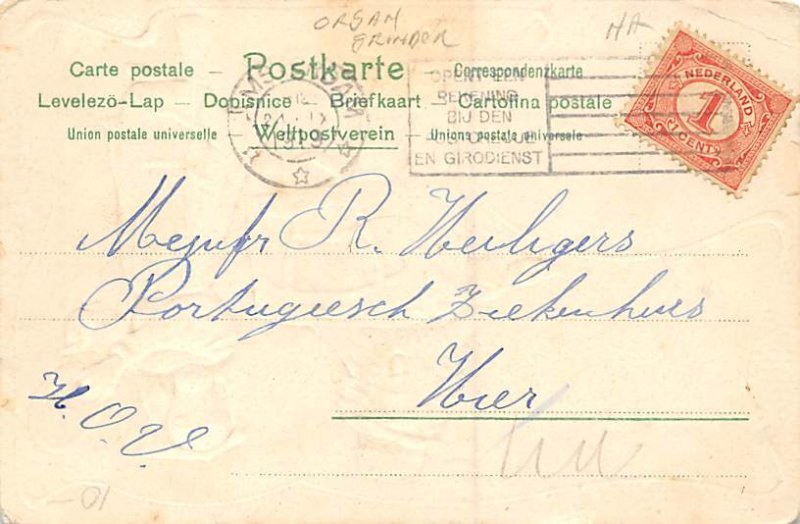 ORGAN
GRINDER
HA
Carte postale — Postkarte — Correspondenzkarte
Levelező-Lap — Dopisnice — Briefkaart — Cartolina postale
Union postale universelle — Weltpostverein — Unions postale universelle
OPENT EEN
REKENING
BIJ DEN
POSTCHEQUE
EN GIRODIENST
NEDERLAND
1
CENT
Mejufr R. Heiligers
Portugiesch Ziekenhuis
Hier
H.O.V.